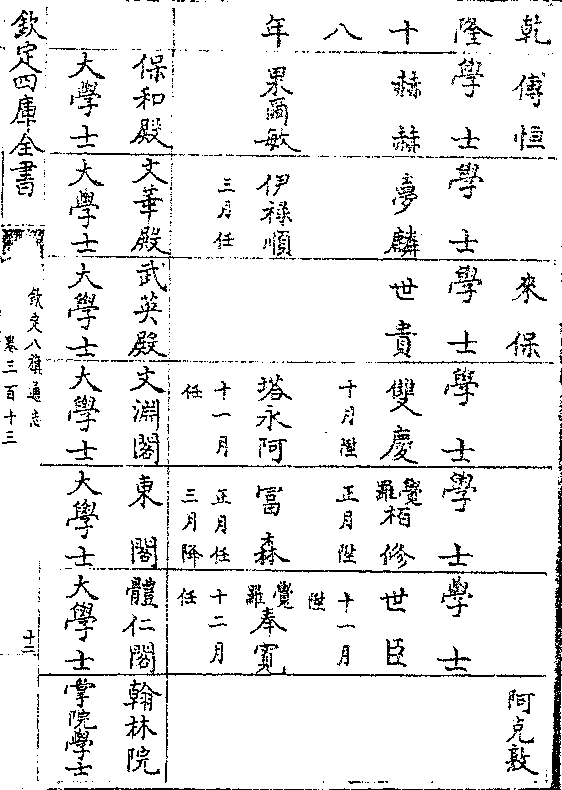 乾隆十八年
傅恒
來保
阿克敦
學士
學士
學士
學士
學士
學士
赫赫
夢麟
世貴
雙慶
十月陞
覺羅栢修
正月陞
世臣
十一月陞
果爾敏
伊祿順
三月任
塔永阿
十一月任
冨森
正月任
三月降
覺羅奉寛
十二月任
保和殿大學士
文華殿大學士
武英殿大學士
文淵閣大學士
東閣大學士
體仁閣大學士
翰林院掌院學士
欽定四庫全書
欽定八旗通志
卷三百十三
十三